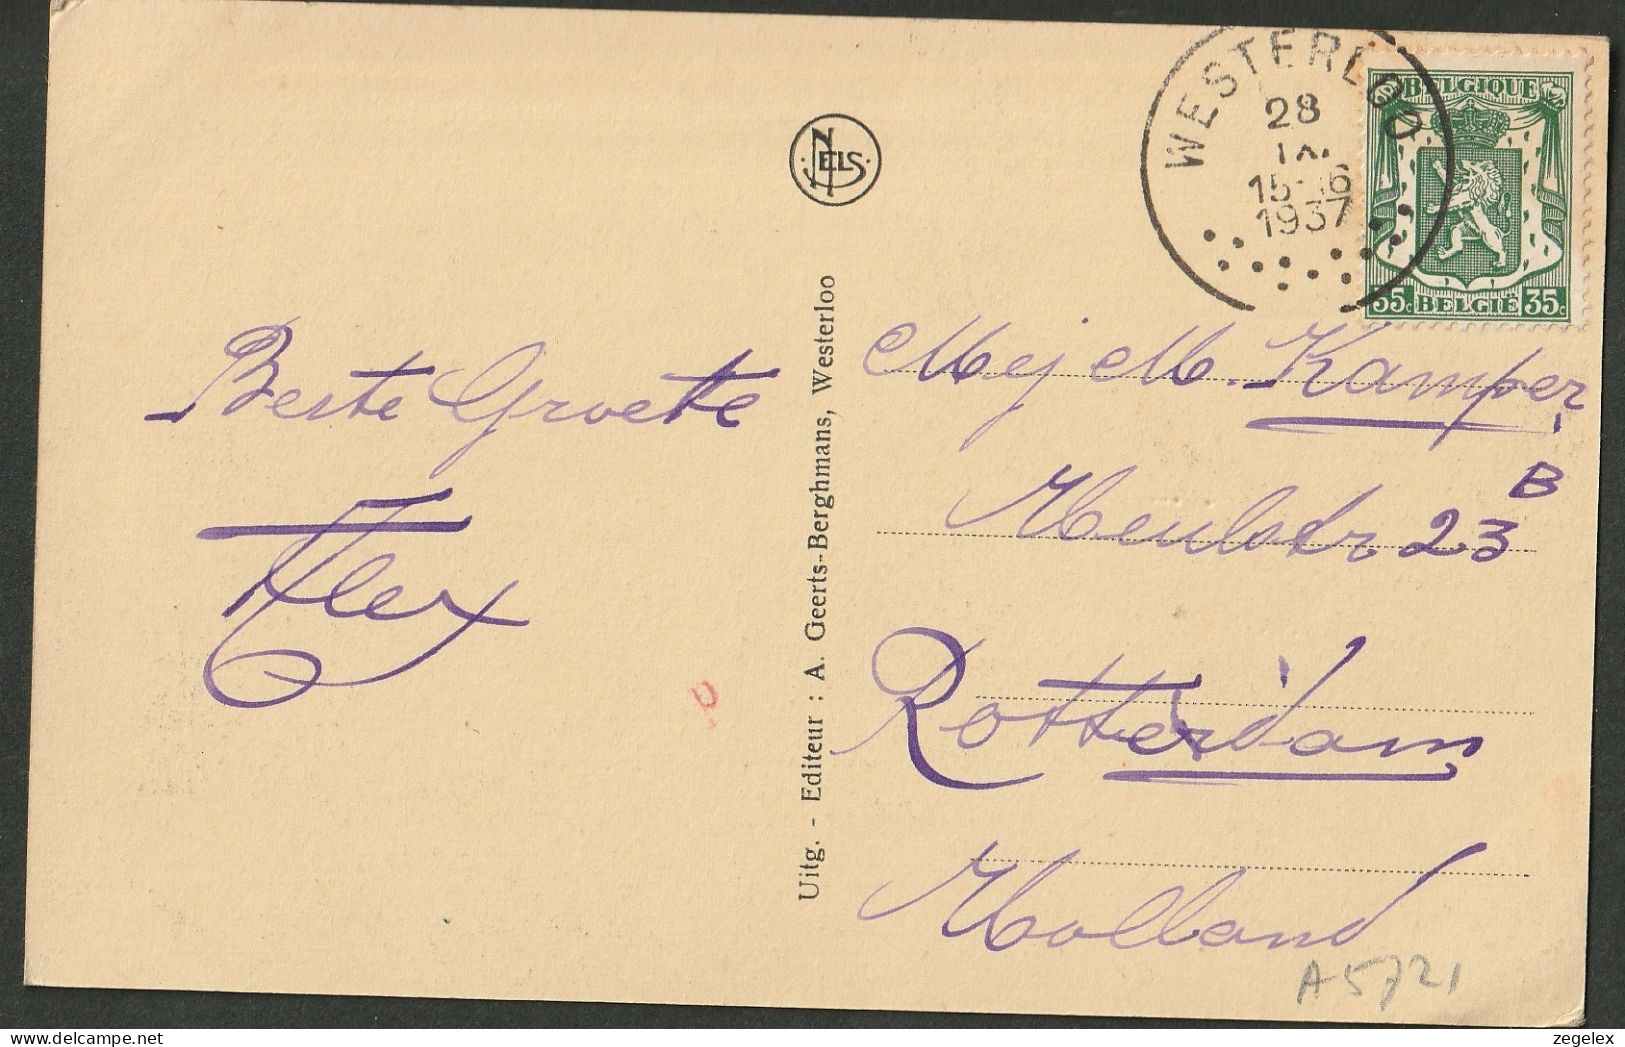 WESTERLOO
28
IX
15-16
1937
BELGIQUE
35c BELGIË 35c
NELS
Uitg. - Editeur : A. Geerts-Berghmans, Westerloo
Beste Groete
Mej M. Kamper
B
Meulstr 23
Rotterdam
Holland
A5721
zegelex